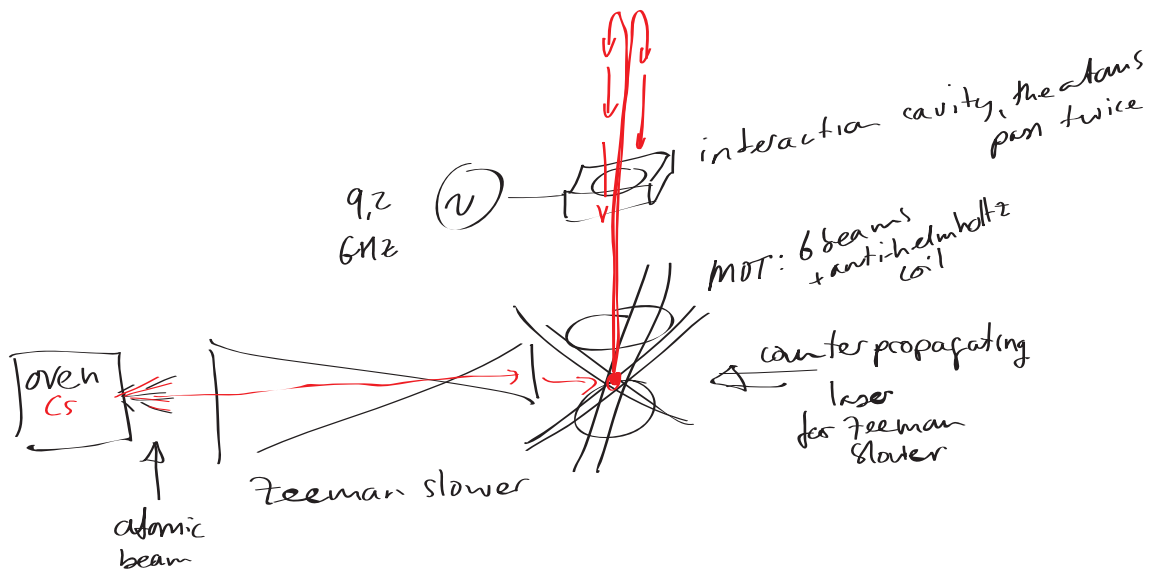 interaction cavity, the atoms
pass twice
9,2
GHz
MOT: 6 beams
+ anti-helmholtz
coil
oven
Cs
counterpropagating
laser
for Zeeman
slower
Zeeman slower
atomic
beam